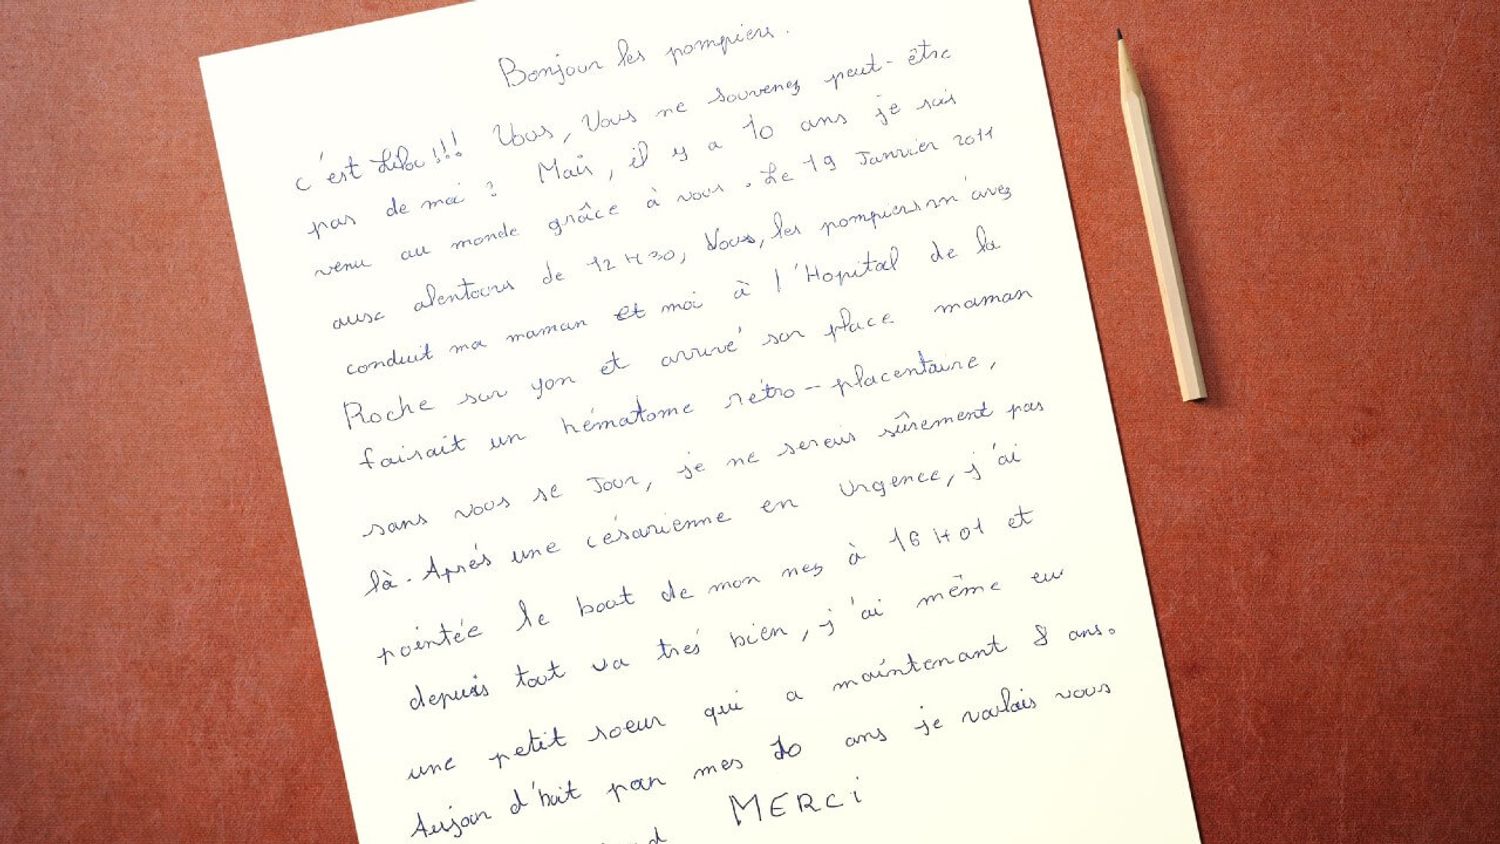 Bonjour les pompiers.
c'est Lilou!!! Vous, Vous ne souvenez peut-être
pas de moi? Mais, il y a 10 ans je suis
venu au monde grâce à vous. Le 19 Janvier 2011
aux alentours de 12H30, Vous, les pompiers m'avez
conduit ma maman et moi à l'Hopital de la
Roche sur yon et arrivé sur place maman
faisait un hématome rétro-placentaire,
sans vous se Jour, je ne serais sûrement pas
là. Aprés une césarienne en Urgence, j'ai
pointée le bout de mon nez à 16H01 et
depuis tout va trés bien, j'ai même eu
une petit soeur qui a maintenant 8 ans.
Aujour d'huit pour mes 10 ans je voulais vous
MERCi